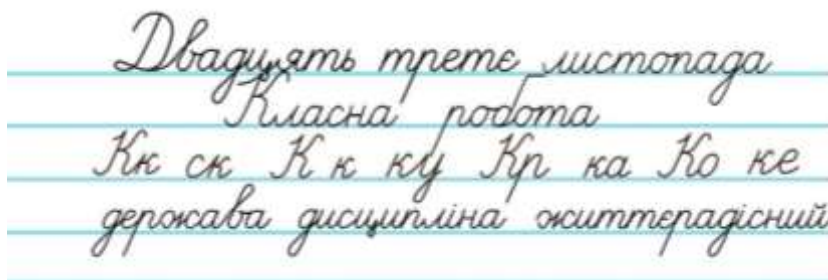 Двадцять третє листопада
Класна робота
Кк ск К к ку Кр ка Ко ке
держава дисципліна життєрадісний